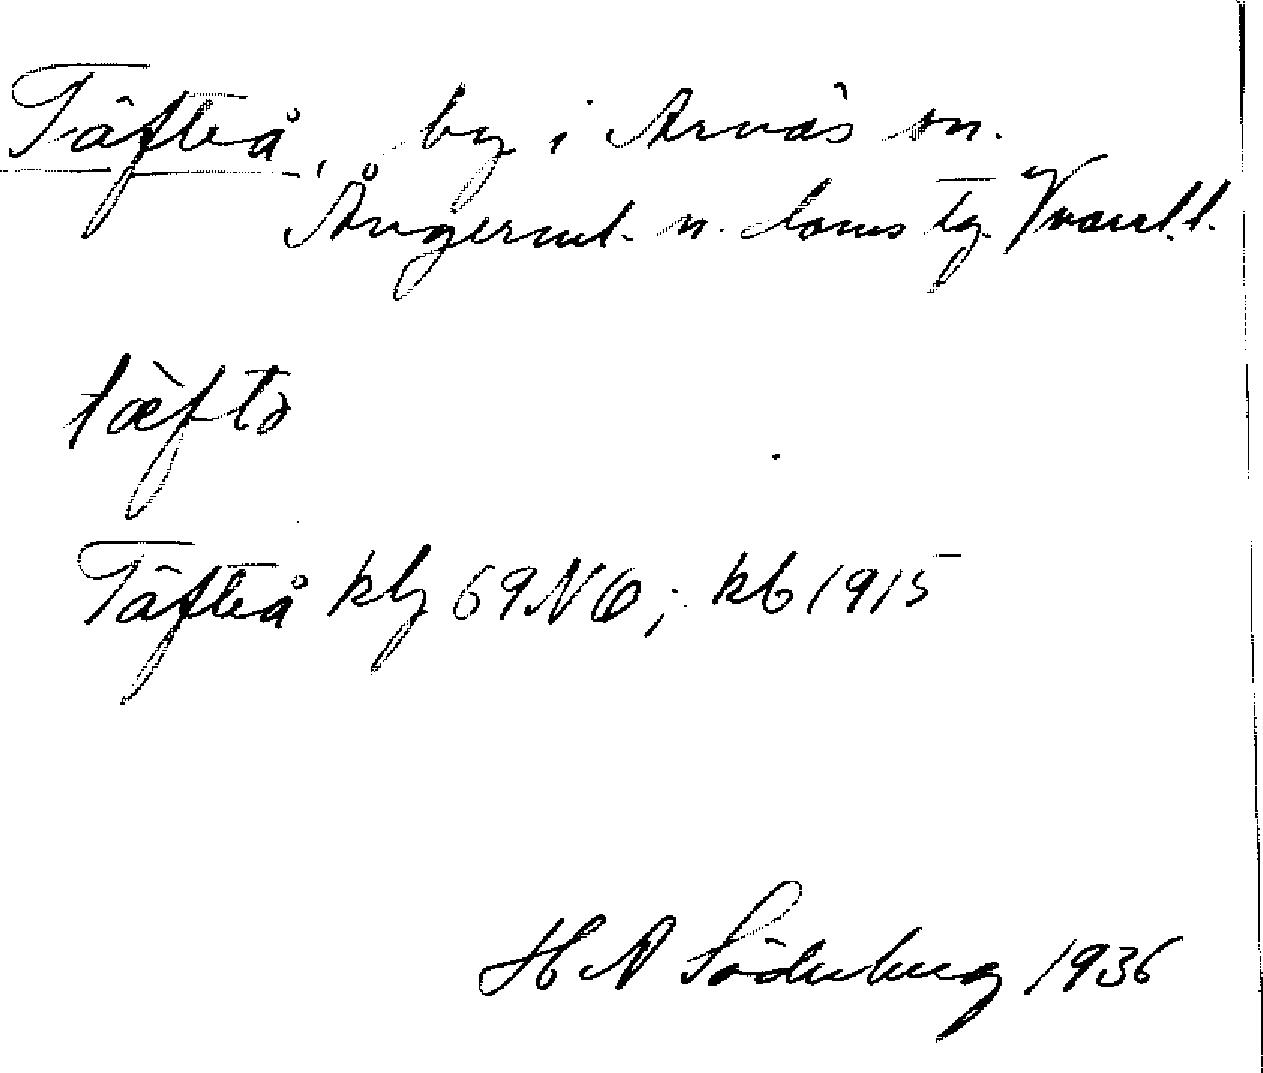 Täfteå, by i Arnäs sn.
Ångerml. n. doms tg. Vnorrl. l.
tæ̀ftə
Täfteå kbg 69 NO; kb 1915
H A Söderberg 1936